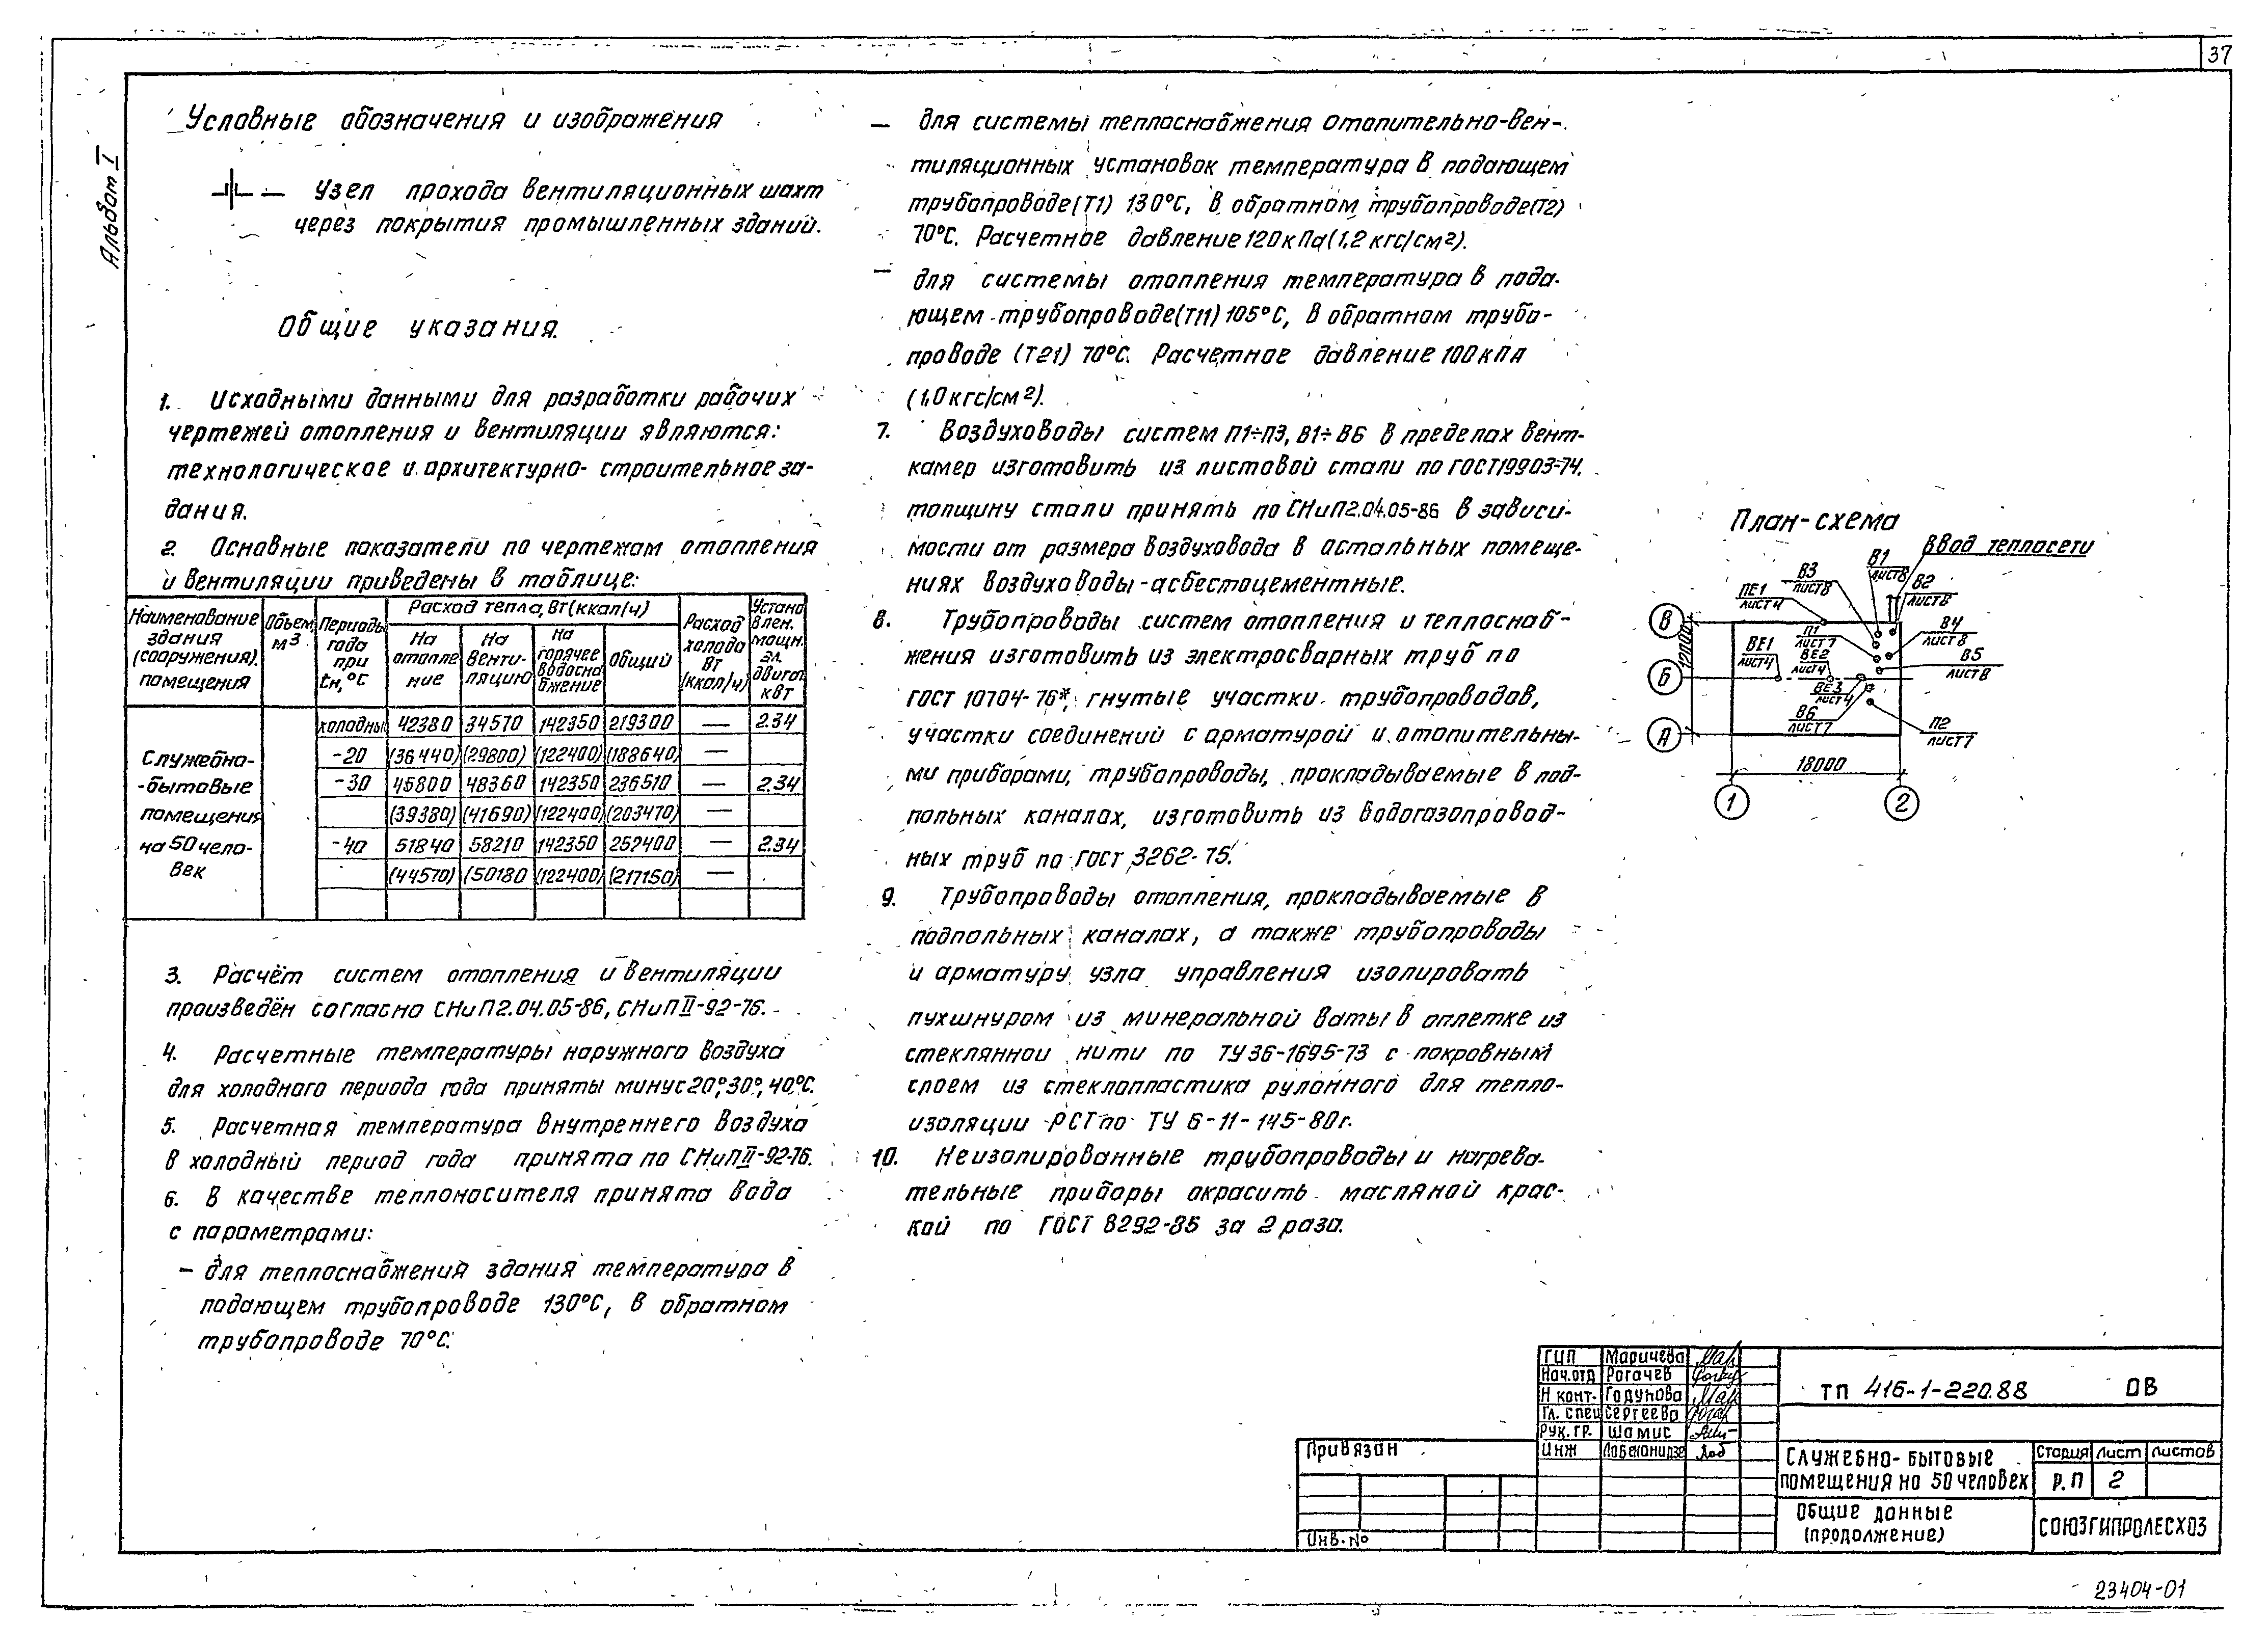 37
Альбом I
Условные обозначения и изображения
— Узел прохода вентиляционных шахт
через покрытия промышленных зданий.
Общие указания.
1. Исходными данными для разработки рабочих
чертежей отопления и вентиляции являются:
технологическое и архитектурно-строительное за-
дания.
2. Основные показатели по чертежам отопления
и вентиляции приведены в таблице:
Наименование здания (сооружения), помещения
Объем, м3
Периоды года при tн, °С
Расход тепла, Вт (ккал/ч)
На отопле ние
На венти- ляцию
На горячее водосна бжение
Общий
Расход холода Вт (ккал/ч)
Устано влен. мощн. эл. двигат кВт
Служебно-
-бытовые
помещения
на 50 чело-
век
холодны 42380 34570 142350 219300 — 2.34
-20 (36440) (29800) (122400) (188640) —
-30 45800 48360 142350 236510 — 2.34
(39380) (41690) (122400) (203470) —
-40 51840 58210 142350 252400 — 2.34
(44570) (50180 (122400) (217150) —
3. Расчёт систем отопления и вентиляции
произведён согласно СНиП2.04.05-86, СНиПII-92-76.
4. Расчетные температуры наружного воздуха
для холодного периода года приняты минус 20°, 30°, 40°С.
5. Расчетная температура внутреннего воздуха
в холодный период года принята по СНиПII-92-76.
6. В качестве теплоносителя принята вода
с параметрами:
— для теплоснабжения здания температура в
подающем трубопроводе 130°С, в обратном
трубопроводе 70°С.
— для системы теплоснабжения отопительно-вен-
тиляционных установок температура в подающем
трубопроводе (Т1) 130°С, в обратном трубопроводе (Т2)
70°С. Расчетное давление 120 кПа (1,2 кгс/см2).
— для системы отопления температура в пода-
ющем трубопроводе (Т11) 105°С, в обратном трубо-
проводе (Т21) 70°С. Расчетное давление 100 кПа
(1,0 кгс/см2).
7. Воздуховоды систем П1÷П3, В1÷В6 в пределах вент-
камер изготовить из листовой стали по ГОСТ19903-74.
толщину стали принять по СНиП2.04.05-86 в зависи-
мости от размера воздуховода в остальных помеще-
ниях воздуховоды - асбестоцементные.
8. Трубопроводы систем отопления и теплоснаб-
жения изготовить из электросварных труб по
ГОСТ 10704-76*, гнутые участки трубопроводов,
участки соединений с арматурой и отопительны-
ми приборами, трубопроводы, прокладываемые в под-
польных каналах, изготовить из водогазопровод-
ных труб по ГОСТ 3262-75.
9. Трубопроводы отопления, прокладываемые в
подпольных каналах, а также трубопроводы
и арматуру узла управления изолировать
пухшнуром из минеральной ваты в оплетке из
стеклянной нити по ТУ36-1695-73 с покровным
слоем из стеклопластика рулонного для тепло-
изоляции РСТ по ТУ 6-11-145-80г.
10. Неизолированные трубопроводы и нагрева-
тельные приборы окрасить масляной крас-
кой по ГОСТ 8292-85 за 2 раза.
План-схема
Ввод теплосети
В1
лист8
В3
лист8
В2
лист8
ПЕ1
лист4
П1
лист7
В4
лист8
ВЕ1
лист4
ВЕ2
лист4
В5
лист8
ВЕ3
лист4
В6
лист7
П2
лист7
В
Б
А
12000
18000
1
2
ГИП Маричева
Нач.отд Рогачев
Н конт. Годунова
Гл. спец Сергеева
Рук.гр. Шамис
Инж
Привязан
Инв. №
ТП 416-1-220.88 ОВ
Служебно-бытовые
помещения на 50 человек
Стадия Лист Листов
Р.П 2
Общие данные
(продолжение)
СОЮЗГИПРОЛЕСХОЗ
23404-01